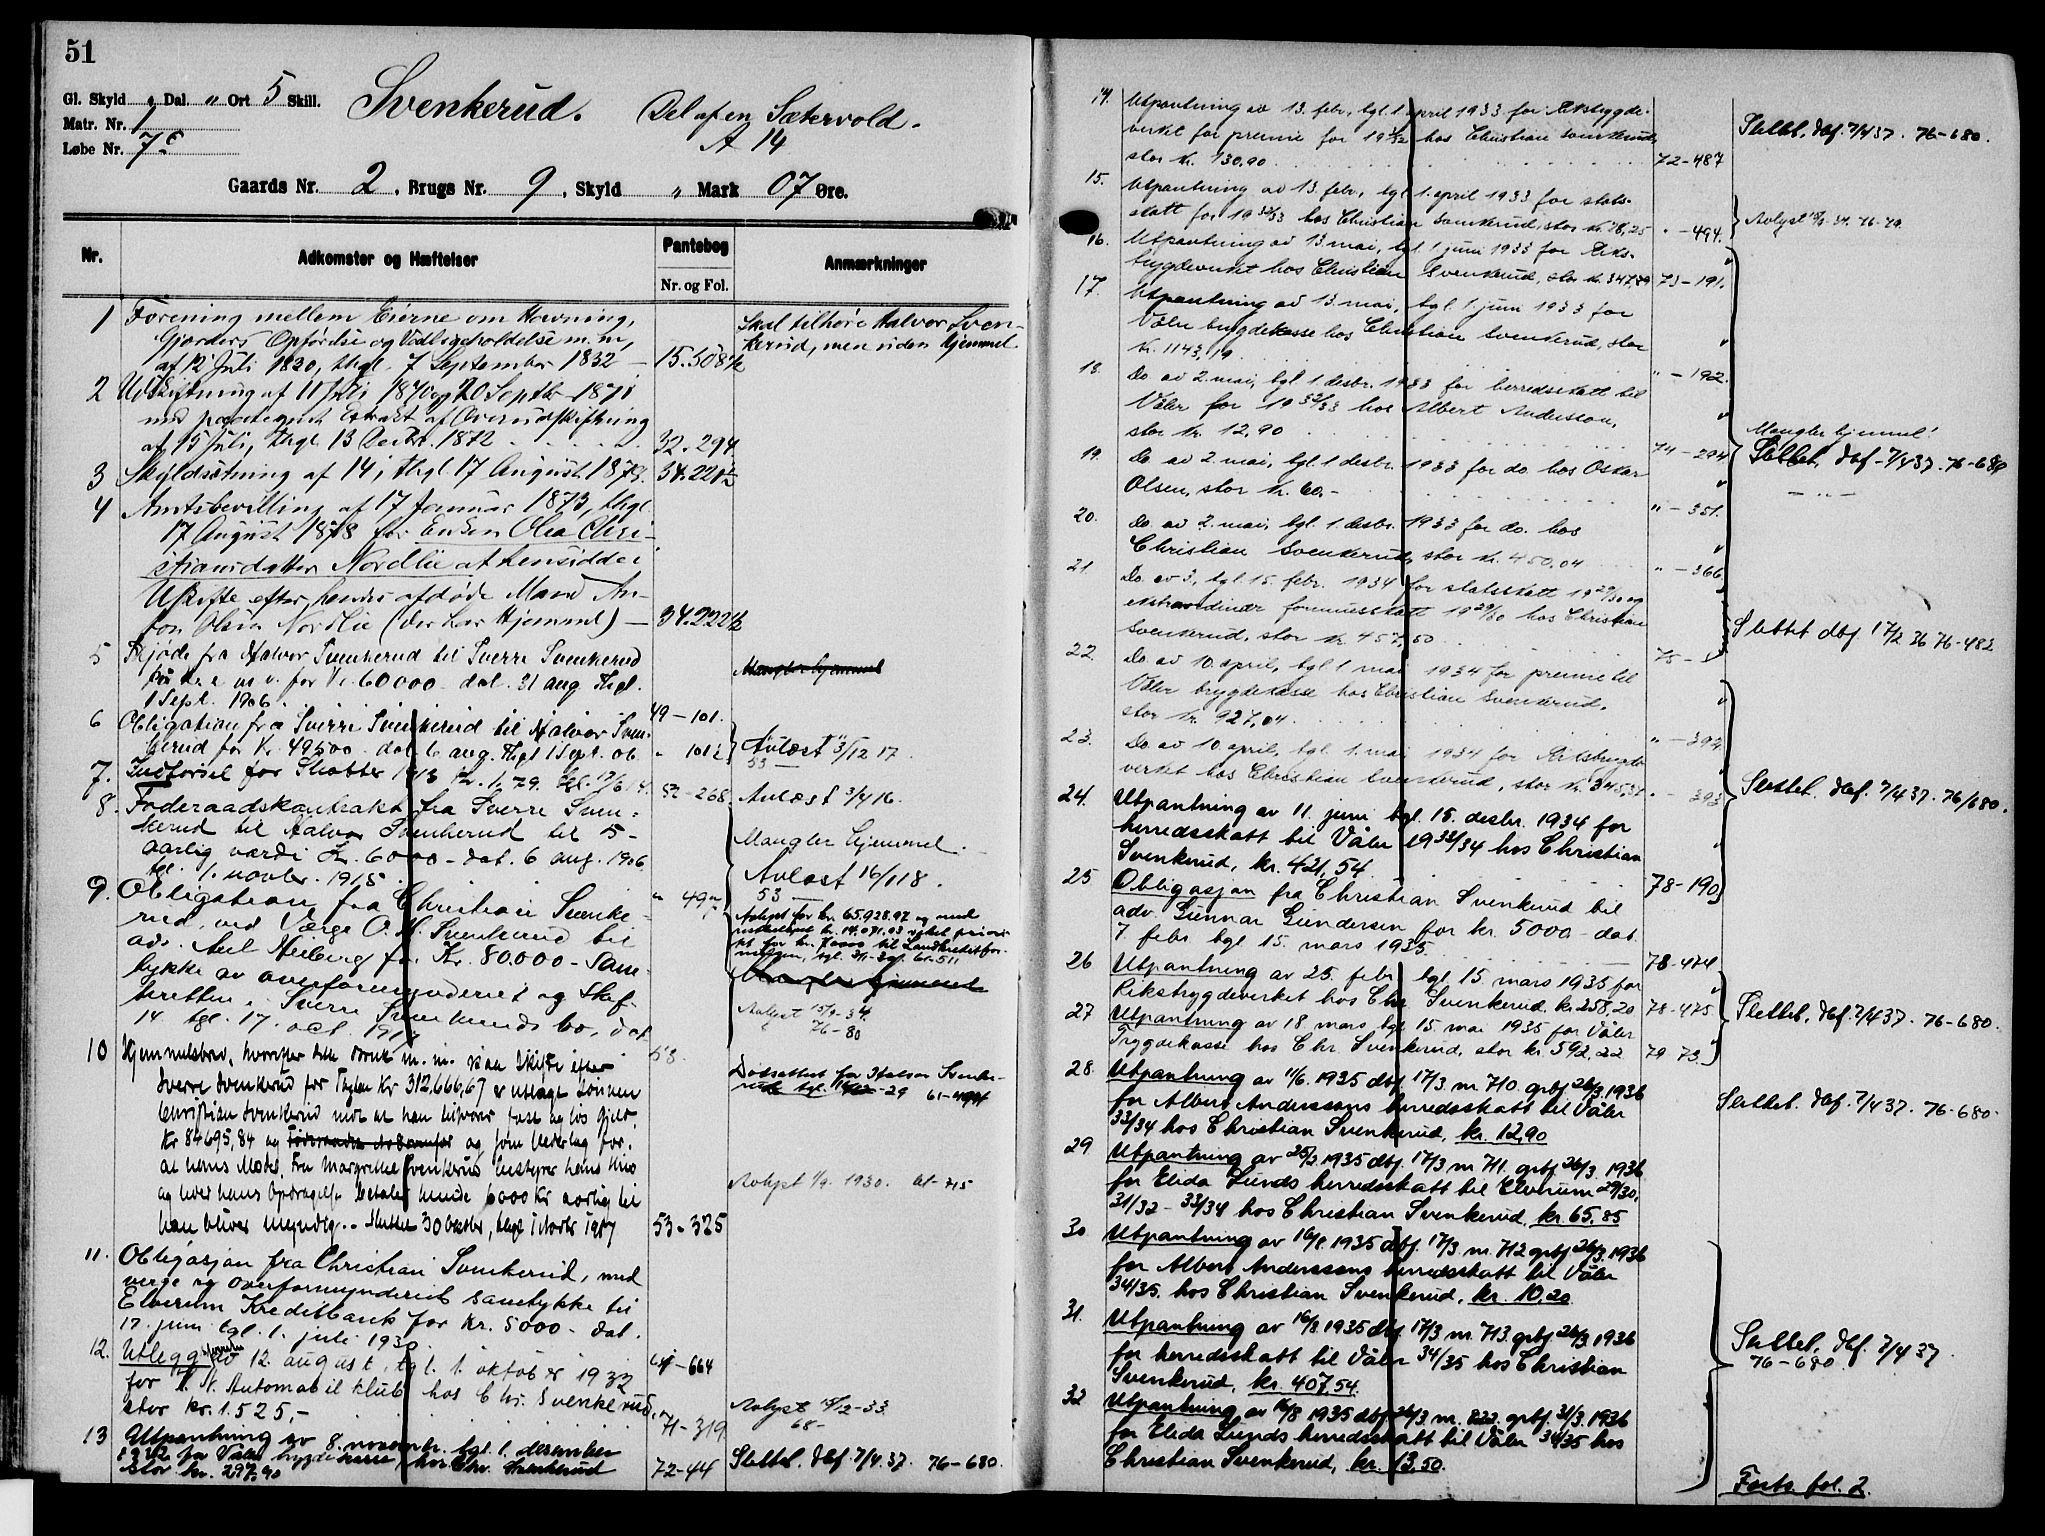 51
Gl. Skyld " Dal. " Ort 5 Skill.
Matr. Nr. 1
Løbe Nr. 7c
Svenkerud. Del af en Sætervold.
A 14
Gaards Nr. 2, Brugs Nr. 9, Skyld " Mark 07 Øre.
Nr.
Adkomster og Hæftelser
Pantebog
Nr. og Fol.
Anmærkninger
1 Forening mellem Eierne om Havning,
Gjærders Opførelse og Vedligeholdelse m. m.
af 12 Juli 1830, thgl. 7 September 1832 — 15.508½
Skal tilhøre Halvor Sven-
kerud, men uden Hjemmel
2 Udskiftning af 11 Juli 1870 og 20 Septbr 1871
med paategnet Extrakt af Overudskiftning
af 15 Juli, thgl. 13 Decbr. 1872 . . . . 32.294
3 Skyldsætning af 14, thgl 17 August 1878. 34.221½
4 Amtsbevilling af 17 Januar 1873, thgl.
17 August 1878 for Enken Olea Chri-
stiansdatter Nordlie at hensidde i
Uskifte efter hendes afdøde Mand An-
ton Olsen Nordlie (der har Hjemmel) — 34.222½
5 Skjøde fra Halvor Svenkerud til Sverre Svenkerud
for Kr. 60000 dat. 31 aug. thgl.
1 Sept. 1906. 49-101.
Mangler hjemmel
6 Obligation fra Sverre Svenkerud til Halvor Sven-
kerud for Kr. 49500 dat 6 aug. thgl 1 Sept. 06 " 101½
Avlæst 3/12 17.
53 —
7. Indførsel for Skatter 1913 Kr. 1,79. tgl. 17/6 14. 52-268.
Avlæst 3/4 16.
8. Føderaadskontrakt fra Sverre Sven-
kerud til Halvor Svenkerud til 5-
aarlig værdi Kr. 6000 - dat. 6 aug. 1906,
tgl. 1. novbr. 1915. " 49
Mangler hjemmel.
Avlæst 16/1 18.
53 —
9. Obligation fra Christian Svenke-
rud, ved Værge O. H. Svenkerud til
adv. Axel Heiberg for Kr. 80.000 - Sam-
tykke av overformynderiet og Skif-
teretten i Sverre Svenkeruds bo, dat
14 tgl. 17. oct. 1917 53.
Avlyst for kr. 65.928.97 og med
restbeløpet kr. 14.071.03 veket priori-
tet for kr. til Landkreditfor-
Mangler hjemmel
Avlyst 15/9-34
76-80
10 Hjemmelsbrev, hvorefter dette bruk m. m. paa Skifte efter
Sverre Svenkerud for Kr 312,666,67 er utlagt Sønnen
Christian Svenkerud mot at han utreder fast og løs Gjeld,
Kr 84695,84 og og som Vederlag for,
at hans Moder, Fru Margrethe Svenkerud bestyrer hans Hus
og leder hans Opdragelse betaler hende 6000 Kr aarlig til
han bliver myndig. - Sluttet 30 Oktbr, thgl 1 Novbr 1917 53-325
Dødsattest for Halvor Svenke-
rud tgl. -29 61-
Avlyst 1/9. 1930. 61-715
11. Obligasjon fra Christian Svenkerud, med
verge og overformynderiets samtykke til
Elverum Kreditbank for kr. 5000 - dat.
17. juni tgl. 1. juli 1930. -664
12. Utlegg av 12. august, tgl. 1. oktober 1932
for K. N. Automobil klub hos Chr. Svenkerud,
stor kr. 1.525,- 71-319
Avlyst 15/2-33
68-
13 Utpantning av 8. novembr. tgl. 1. desember
1932 for Våler trygdekasse, hos Chr. Svenkerud
stor kr. 297,90 72-44
Slettet. dbf. 7/4.37. 76-680.
14. Utpantning av 13. febr., tgl. 1. april 1933 for Rikstrygde-
verket for premie for 1931/32 hos Christian Svenkerud,
stor kr. 130.90. 72-487
Slettet. dbf. 7/4 37. 76-680.
15. Utpantning av 13. febr., tgl 1. april 1933 for stats-
skatt for 1932/33 hos Christian Svenkerud, stor kr. 78,25 " -494.
Avlyst 34. 76-79.
16. Utpantning av 13. mai, tgl 1 juni 1933 for Riks-
trygdeverket hos Christian Svenkerud, stor kr. 347,89 73-191.
17. Utpantning av 13. mai, tgl 1. juni 1933 for
Våler trygdekasse hos Christian Svenkerud, stor
kr. 1143,19 " -192.
18. Do. av 2. mai, tgl. 1. desbr. 1933 for herredsskatt til
Våler for 1932/33 hos Albert Andersson,
stor kr. 12,90 74-294
Mangler hjemmel!
Slettet. dbf. 7/4 37. 76-680
19. Do. av 2. mai, tgl. 1 desbr. 1933 for do. hos Oskar
Olsen, stor kr. 60.- " -351.
— " —
20. Do. av 2. mai, tgl. 1. desbr. 1933 for do. hos
Christian Svenkerud, stor kr. 450,04 " -366.
21. Do. av 3., tgl. 15. febr. 1934 for statsskatt 1929/30 og
ekstraordinær formuesskatt 1929/30 hos Christian
Svenkerud, stor kr. 457,50 75-
Slettet dbf 17/2 36 76-482
22. Do. av 10. april, tgl. 1 mai 1934 for premie til
Våler trygdekasse hos Christian Svenkerud,
stor kr. 927,04. " -392.
23. Do. av 10. april, tgl. 1. mai 1934 for Rikstrygde-
verket hos Christian Svenkerud, stor kr. 345,31 " -393
Slettet. dbf. 7/4 37. 76/680.
24. Utpantning av 11. juni tgl. 15. desbr. 1934 for
herredsskatt til Våler 1933/34 hos Christian
Svenkerud, kr. 421,54 78-190
25 Obligasjon fra Christian Svenkerud til
adv. Gunnar Gundersen for kr. 5000 - dat.
7. febr. tgl. 15. mars 1935. 78-474
26 Utpantning av 25. febr. tgl. 15. mars 1935 for
Rikstrygdeverket hos Chr. Svenkerud. kr. 258,20 78-475
27 Utpantning av 18. mars, tgl. 15. mai 1935 for Våler
Trygdekasse hos Chr. Svenkerud, stor kr. 592,22 79-73
Slettet. dbf. 7/4 37. 76-680.
28. Utpantning av 11/6. 1935 dbf. 17/3. nr. 710. grbf 26/3 1936
for Albert Anderssons herredsskatt til Våler
33/34 hos Christian Svenkerud, kr. 12,90
Slettet. dbf. 7/4 37. 76-680.
29 Utpantning av 25/2 1935 dbf. 17/3 nr. 711. grbf 26/3. 1936
for Elida Lunds herredsskatt til Elverum 29/30,
31/32 - 33/34 hos Christian Svenkerud. kr. 65,85
30 Utpantning av 16/8. 1935 dbf. 17/3. nr. 712 grbf 26/3. 1936
for Albert Anderssons herredsskatt til Våler
34/35. hos Christian Svenkerud, kr. 10,20
31. Utpantning av 16/8. 1935 dbf 17/3 nr. 713. grbf 26/3 1936
for herredsskatt til Våler 34/35 hos Christian
Svenkerud, kr. 407,54.
Slettet. dbf. 7/4 37.
76-680.
32 Utpantning av 16/8 1935 dbf 26/3 nr. 822. grbf. 31/3. 1936
for Elida Lunds herredsskatt til Våler 34/35 hos
Christian Svenkerud, kr. 13,50.
Forts. fol. 2.